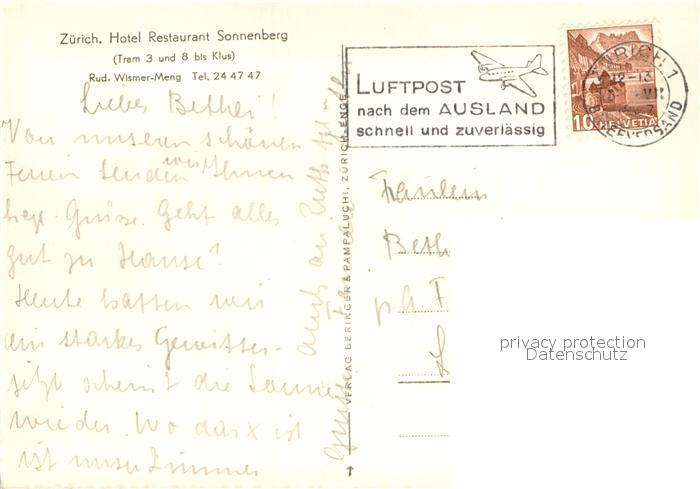 Zürich. Hotel Restaurant Sonnenberg
(Tram 3 und 8 bis Klus)
Rud. Wismer-Meng Tel. 24 47 47
Liebes Betheli!
Von unseren schönen
Ferien senden wir Ihnen
hezl. Grüsse. Geht alles
gut zu Hause?
Heute hatten wir
ein starkes Gewitter.
jetzt scheint die Sonne
wieder. Wo das X ist
ist unser Zimmer
auch an Ruth
VERLAG BERINGER & PAMPALUCHI, ZÜRICH-ENGE
LUFTPOST
nach dem AUSLAND
schnell und zuverlässig
ZÜRICH 1
12-13
BRIEFVERSAND
10 HELVETIA
Fräulein
Beth
p. A. F
privacy protection
Datenschutz